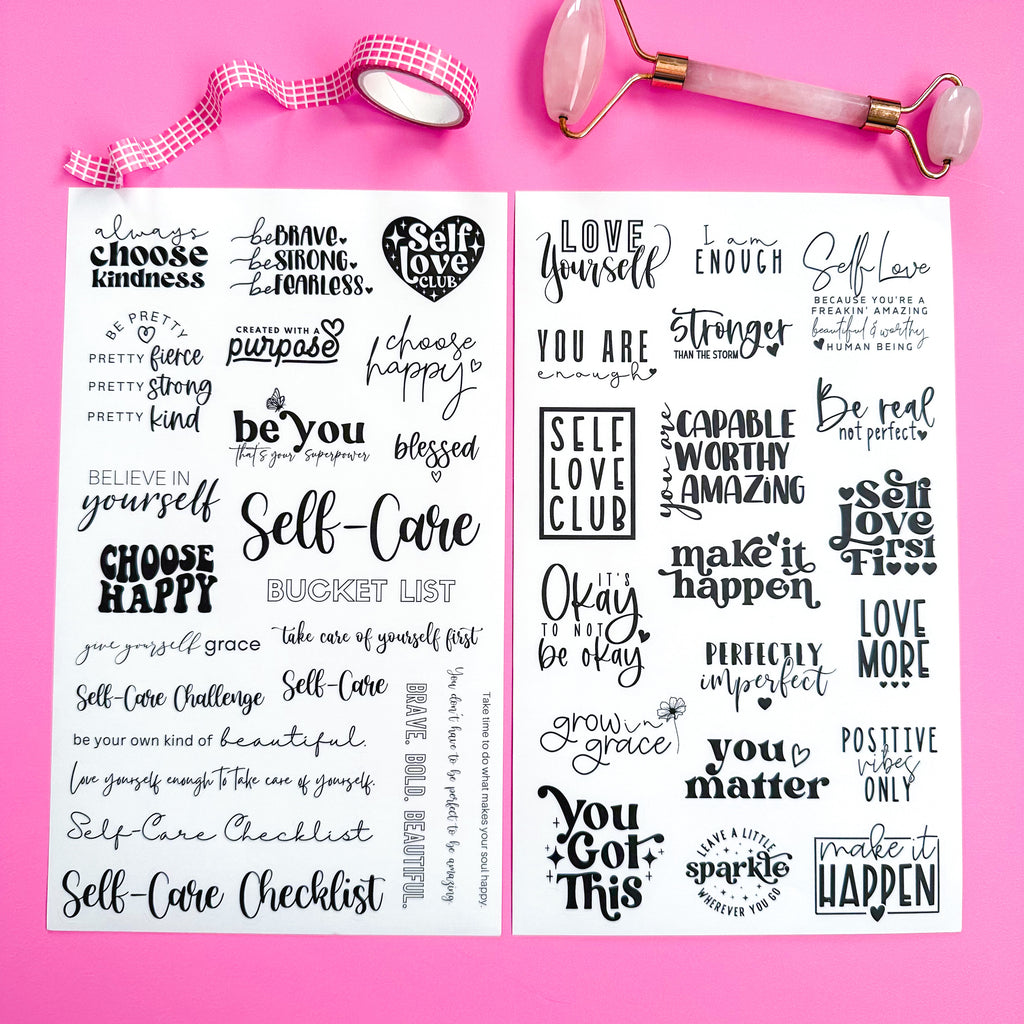 always
choose
kindness
be BRAVE
be STRONG
be FEARLESS
Self
Love
CLUB
BE PRETTY
PRETTY fierce
PRETTY strong
PRETTY kind
CREATED WITH A
purpose
choose
happy
be you
that's your superpower
blessed
BELIEVE IN
yourself
Self-Care
CHOOSE
HAPPY
BUCKET LIST
give yourself grace
take care of yourself first
Self-Care Challenge
Self-Care
be your own kind of beautiful.
Love yourself enough to take care of yourself.
Self-Care Checklist
Self-Care Checklist
BRAVE. BOLD. BEAUTIFUL.
You don't have to be perfect to be amazing.
Take time to do what makes your soul happy.
LOVE
Yourself
I am
ENOUGH
Self Love
BECAUSE YOU'RE A
FREAKIN' AMAZING
beautiful & worthy
HUMAN BEING
YOU ARE
enough
stronger
THAN THE STORM
Be real
not perfect
SELF
LOVE
CLUB
you are
CAPABLE
WORTHY
AMAZING
Self
Love
First
make it
happen
IT'S
Okay
TO NOT
be okay
LOVE
MORE
PERFECTLY
imperfect
grow in
grace
you
matter
POSITIVE
vibes
ONLY
You
Got
This
LEAVE A LITTLE
sparkle
WHEREVER YOU GO
make it
HAPPEN